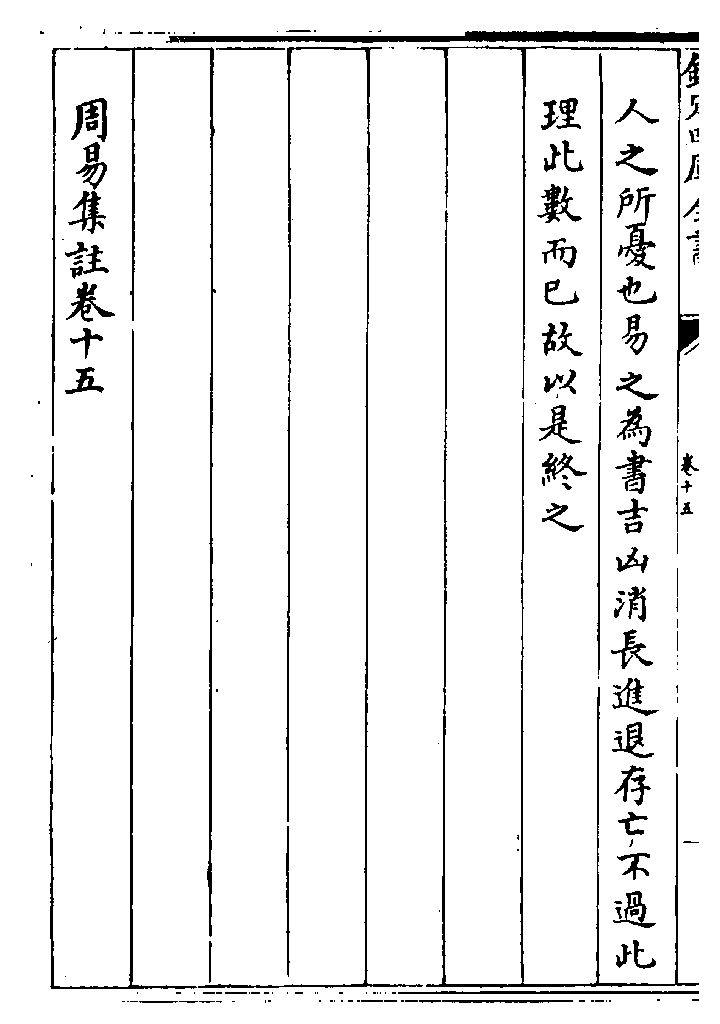 欽定四庫全書
卷十五
人之所憂也易之為書吉凶消長進退存亡不過此
理此數而已故以是終之
周易集註卷十五